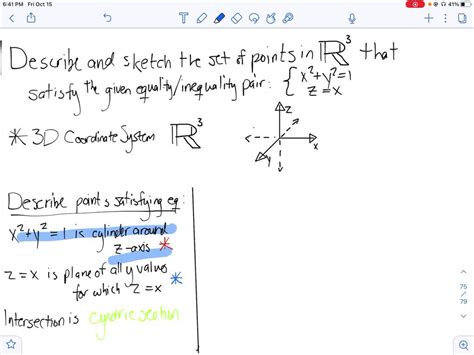 6:41 PM Fri Oct 15
41%
Describe and sketch the set of points in ℝ³ that
satisfy the given equality/inequality pair: { x²+y²=1
z=x
* 3D Coordinate System ℝ³
z
x
y
Describe points satisfying eq:
x²+y²=1 is cylinder around
z-axis *
z=x is plane of all y values *
for which z=x
Intersection is cyndric section
75
79